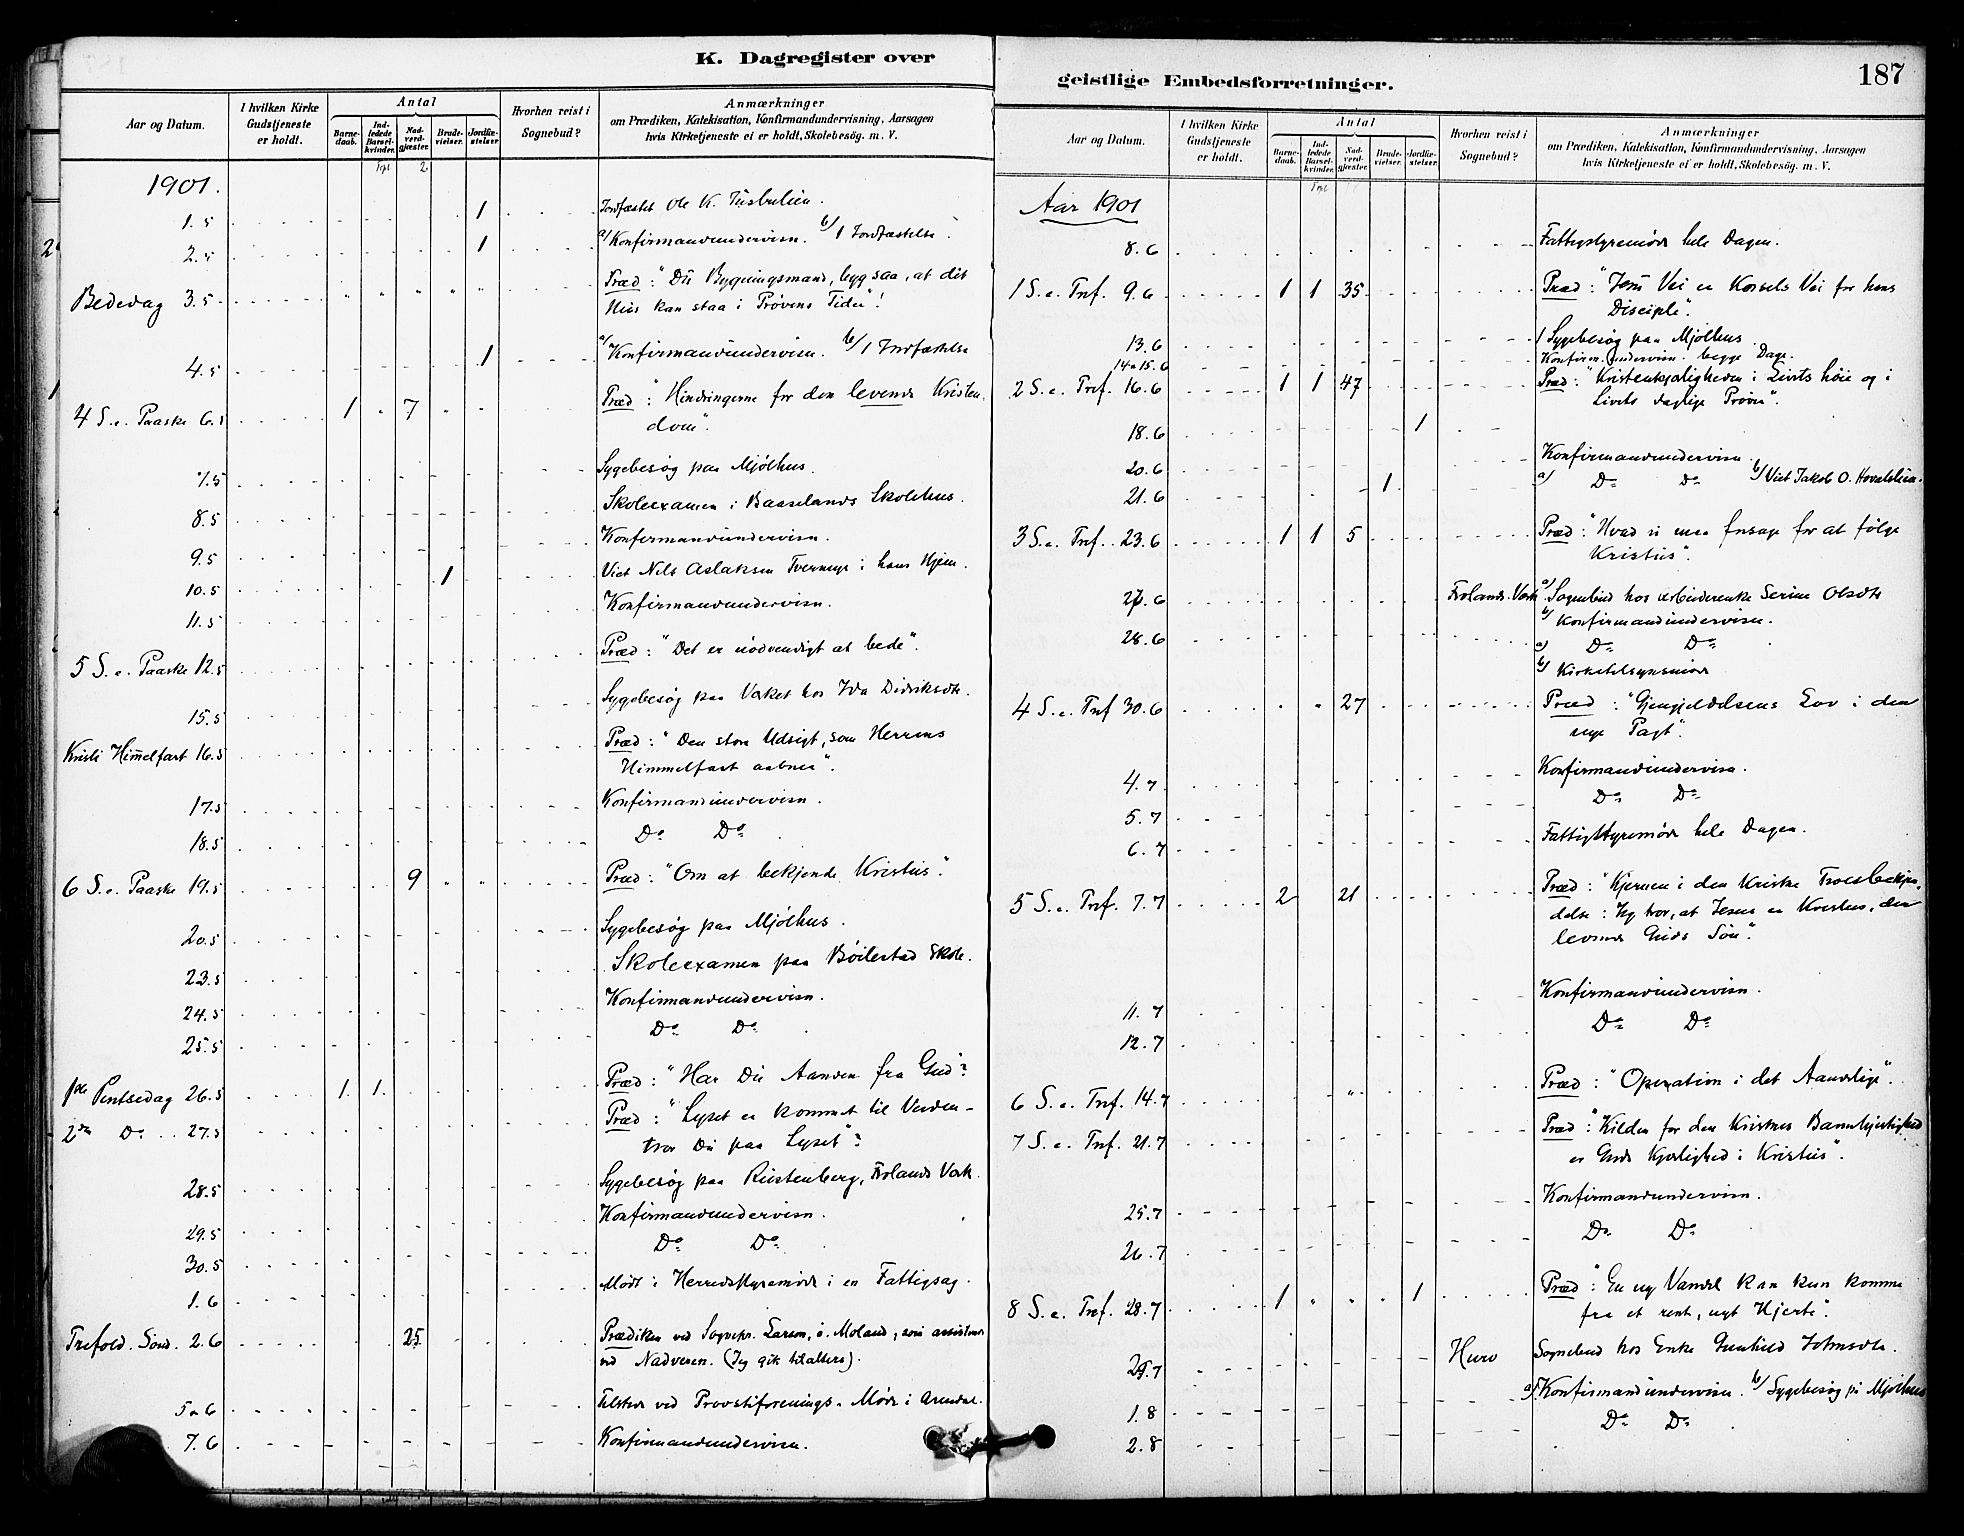 K. Dagregister over
Aar og Datum.
I hvilken Kirke Gudstjeneste er holdt.
Antal
Barne-daab.
Ind-ledede Barsel-kvinder.
Nad-verd-gjæster.
Brude-vielser.
Jordfæ-stelser
Hvorhen reist i Sognebud?
Anmærkninger
om Prædiken, Katekisation, Konfirmandundervisning, Aarsagen
hvis Kirketjeneste ei er holdt, Skolebesög. m. V.
1901.
1.5 1 Jordfæstet Ole K.
2.5 1 a/ Konfirmandundervisn. b/ 1 Jordfæstelse.
Bededag 3.5 Præd: "Du Bygningsmand, byg saa, at dit
Huus kan staa i Prøvens Tider"!
4.5 1 a/ Konfirmandundervisn. b/ 1 Jordfæstelse
4 S. e. Paaske 6.5 1 7 Præd: "Hindringerne for den levende Kristen-
dom".
7.5 Sygebesøg paa Mjølhus.
8.5 Skoleexamen i Baaselands Skolehus.
9.5 Konfirmandundervisn.
10.5 1 Viet Nils Aslaksen i hans Hjem.
11.5 Konfirmandundervisn.
5 S. e. Paaske 12.5 Præd: "Det er nödvendigt at bede".
15.5 Sygebesøg paa Værket hos Ida Didriksdtr.
Kristi Himmelfart 16.5 Præd: "Den store Udsigt, som Herrens
Himmelfart aabner".
17.5 Konfirmandundervisn.
18.5 Do Do
6 S. e. Paaske 19.5 9 Præd: "Om at bekjende Kristus".
20.5 Sygebesøg paa Mjölhus.
23.5 Skoleexamen paa Böilestad Skole.
24.5 Konfirmandundervisn.
25.5 Do Do
1ste Pintsedag 26.5 1 1 Præd: "Har Du Aanden fra Gud"?
2den Do 27.5 Præd: "Lyset er kommet til Verden -
tror Du paa Lyset"?
28.5 Sygebesøg paa Rustenberg, Frolands Værk.
29.5 Konfirmandundervisn.
30.5 Do Do
1.6 Mødt i Herredsstyremøde i en Fattigsag.
Trefold. Sönd. 2.6 25 Prædiken ved Sognepr. Larsen, ö. Moland, som assisterede
ved Nadveren. (Jeg gik tilalters).
5 & 6 Tilstede ved Provstiforenings-Møde i Arendal.
7.6 Konfirmandundervisn.
geistlige Embedsforretninger.
187
Aar og Datum.
I hvilken Kirke Gudstjeneste er holdt.
Antal
Barne-daab.
Ind-ledede Barsel-kvinder.
Nad-verd-gjæster.
Brude-vielser.
Jordfæ-stelser.
Hvorhen reist i Sognebud?
Anmærkninger
om Prædiken, Katekisation, Konfirmandundervisning, Aarsagen
hvis Kirketjeneste ei er holdt, Skolebesög. m. V.
Aar 1901
8.6 Fattigstyremöde hele Dagen.
1 S. e. Tref. 9.6 1 1 35 Præd: "Jesu Vei er Korsets Vei for hans
Disciple".
13.6 1 Sygebesøg paa Mjølhus.
14 & 15.6 Konfirm. undervisn. begge Dage.
2 S. e. Tref. 16.6 1 1 47 Præd: "Kristenkjærligheden i Livets höie og i
Livets daglige Prøve".
18.6 1
20.6 Konfirmandundervisn.
21.6 1 a/ Do Do b/ Viet Jakob O.
3 S. e. Tref. 23.6 1 1 5 Præd: "Hvad vi maa forsage for at følge
Kristus".
27.6 Frolands Værk a/ Sognebud hos Arbeiderenke Serine Olsdtr
b/ Konfirmandundervisn.
28.6 a/ Do Do
b/ Kirketilsynsmöde
4 S. e. Tref 30.6 27 Præd: "Gjengjeldelsens Lov i den
nye Pagt".
4.7 Konfirmandundervisn.
5.7 Do Do
6.7 Fattigstyremöde hele Dagen.
5 S. e. Tref. 7.7 2 21 Præd: "Kjernen i den kristne Troesbekjen-
delse: Jeg tror, at Jesus er Kristus, den
levende Guds Sön".
11.7 Konfirmandundervisn.
12.7 Do Do
6 S. e. Tref. 14.7 Præd: "Operation i det Aandelige".
7 S. e. Tref. 21.7 Præd: "Kilden for den Kristnes Barmhjertighed
er Guds Kjærlighed i Kristus".
25.7 Konfirmandundervisn.
26.7 Do Do
8 S. e. Tref. 28.7 1 1 Præd: "En ny Vandel kan kun komme
fra et rent, nyt Hjerte".
29.7 Hurv Sognebud hos Enke Gunhild Johnsdtr.
1.8 a/ Konfirmandundervisn. b/ Sygebesøg på Mjölhus
2.8 Do Do